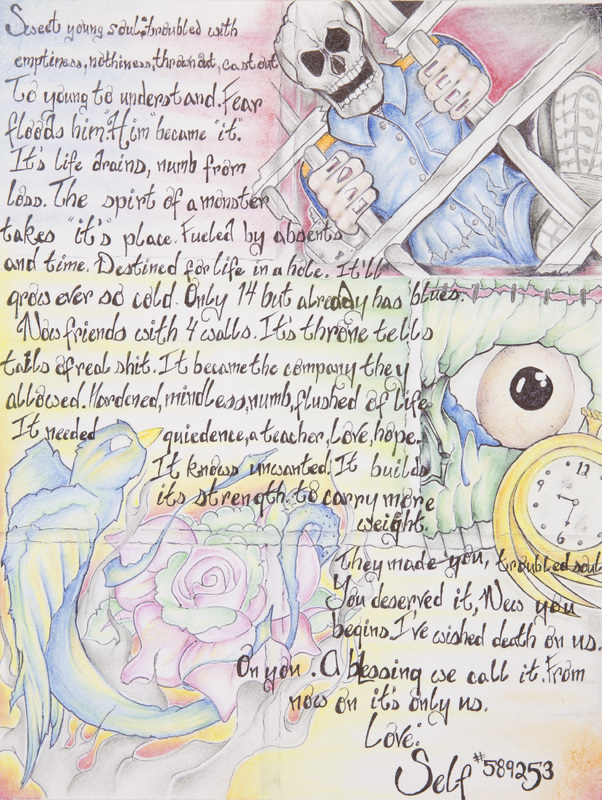 Sweet young soul; troubled with
emptiness, nothiness, thrown out, cast out
To young to understand. Fear
floods him. "Him" became "it".
It's life drains, numb from
loss. The spirit of a monster
takes "it's" place. Fueled by absents
and time. Destined for life in a hole. It'll
grow ever so cold. Only 14 but already has blues.
Now friends with 4 walls. It's throne tells
tails of real shit. It became the company they
allowed. Hardened, mindless, numb, flushed of life
It needed quiedence, a teacher, Love, hope.
It knows unwanted. It builds
it's strength. to carry more
weight.
They made you, troubled soul
You deserved it, New you
begins. I've wished death on us.
On you. A blessing we call it. From
now on it's only us.
Love:
Self #589253
12
9
6